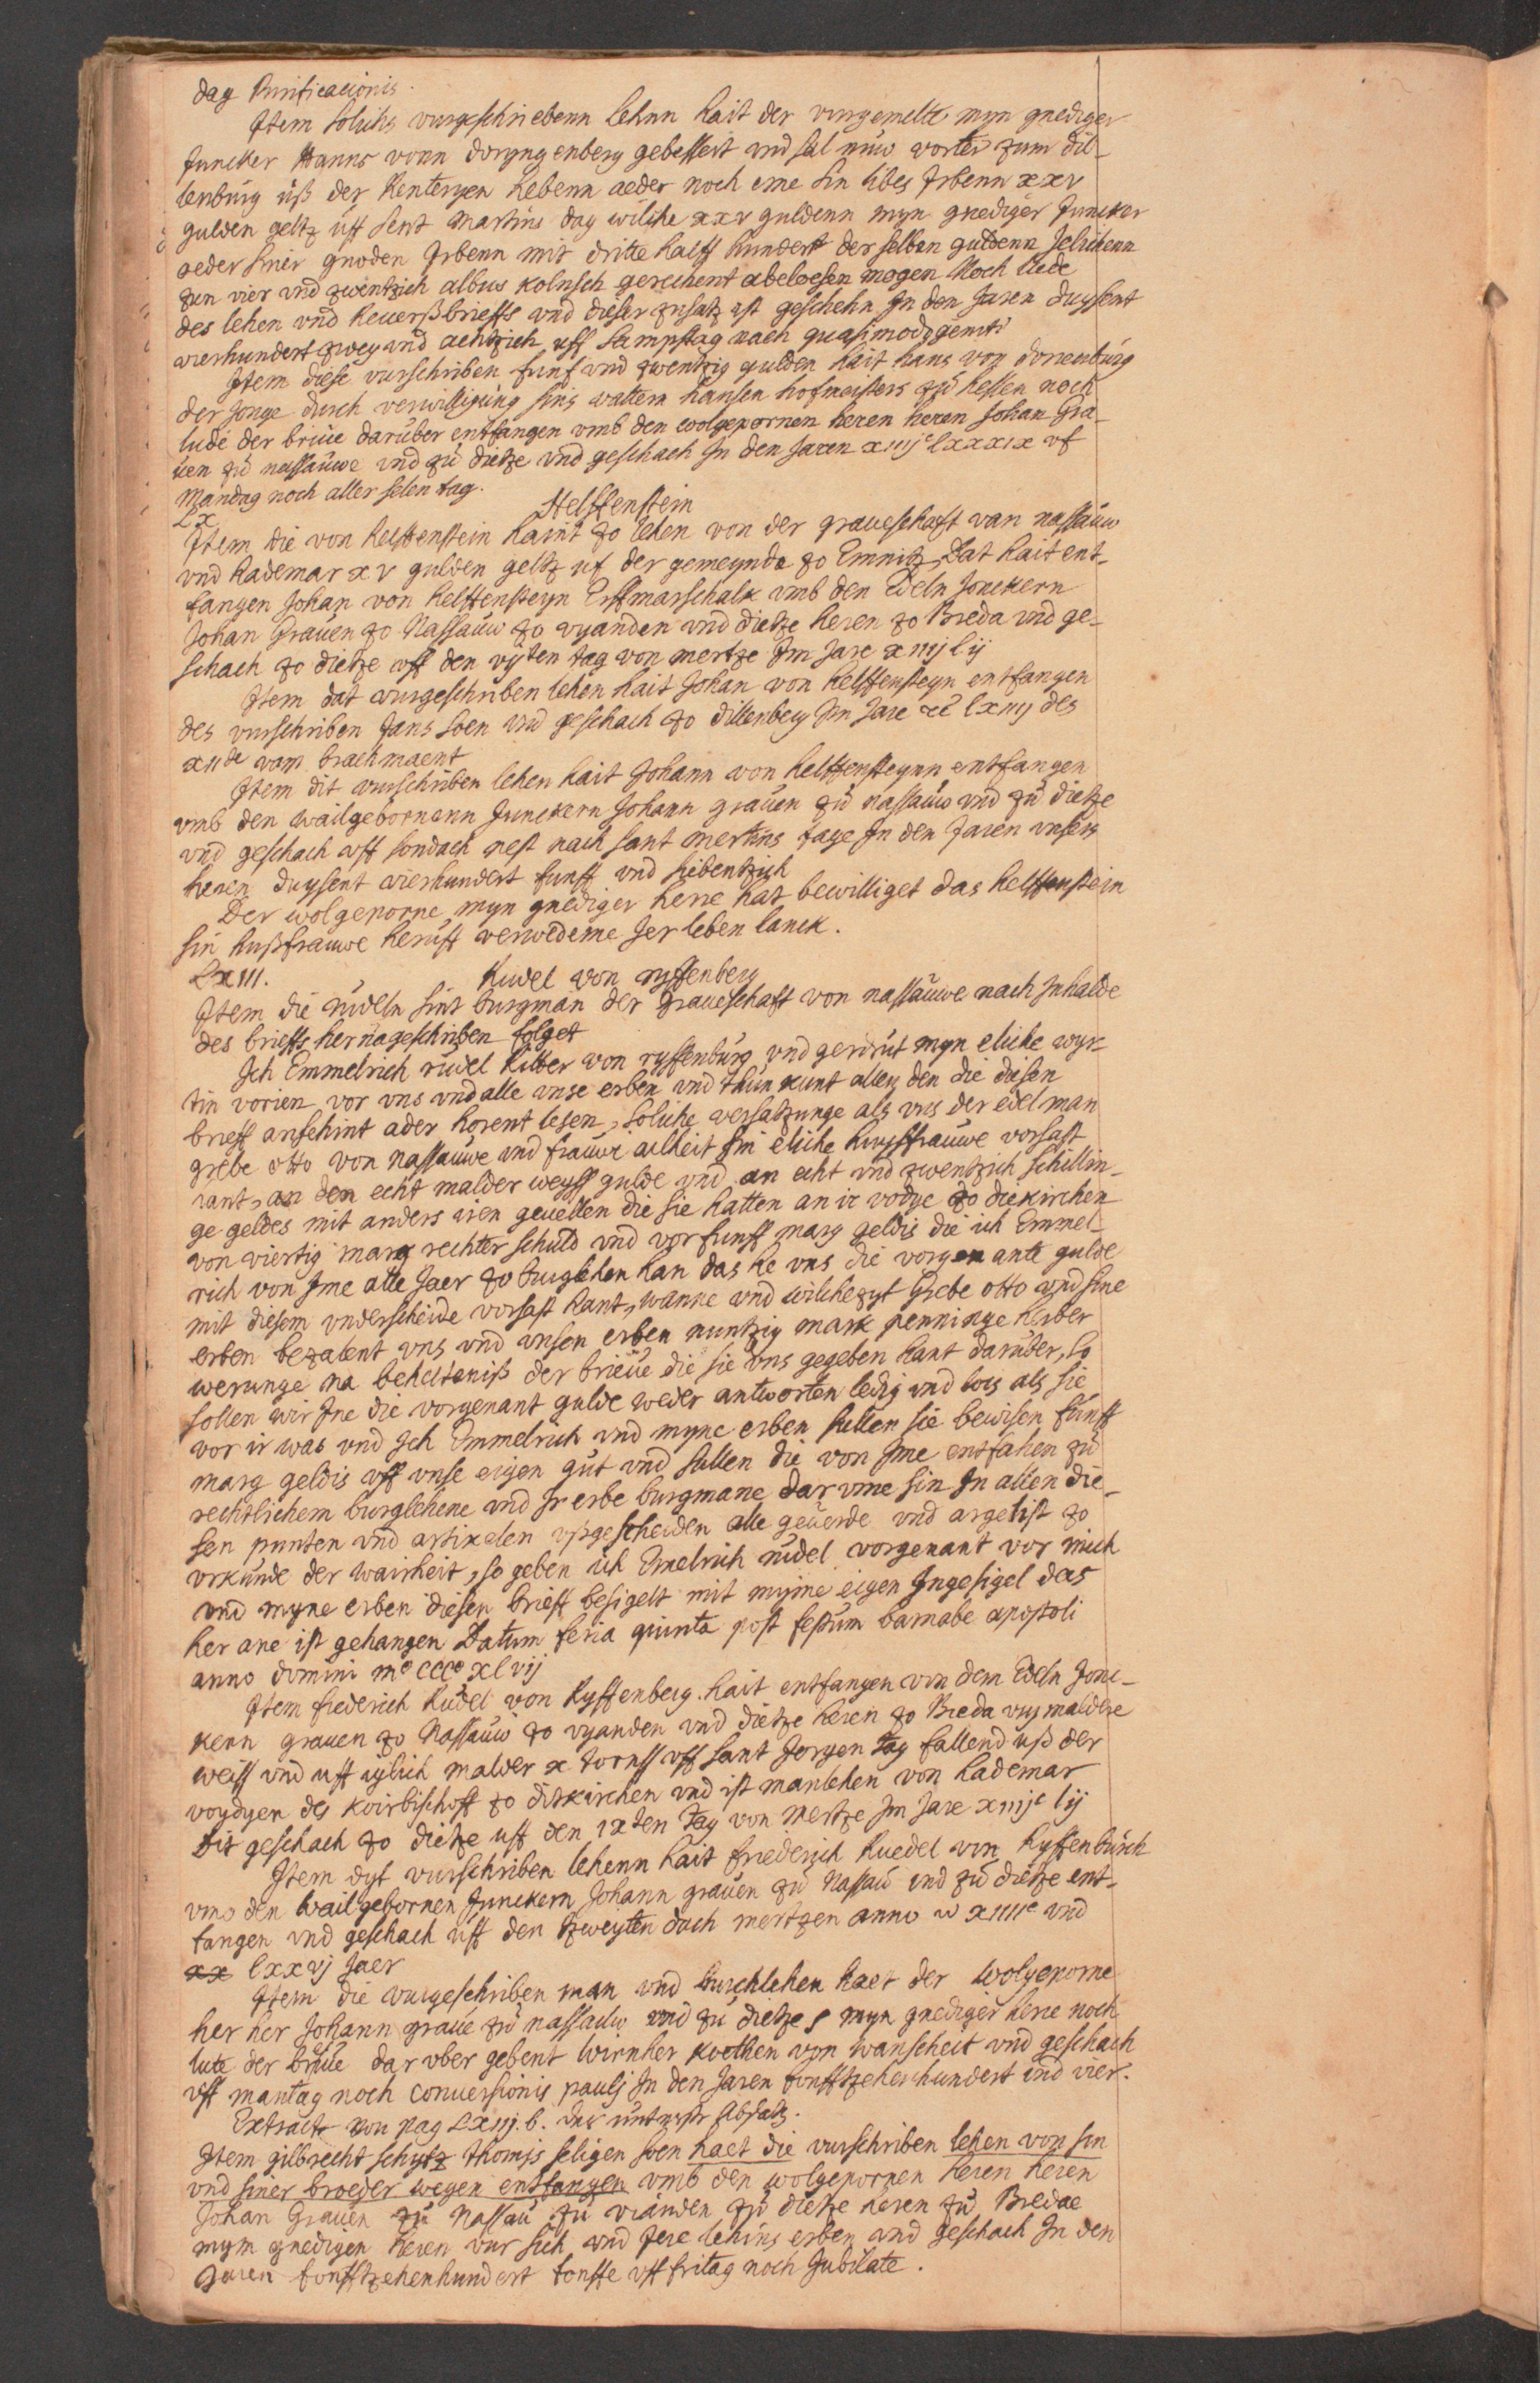 dag Purificacionis.
Jtem solichs vurgeschriebenn lehnn hait der vurgemelte myn gnediger
Juncker Hanns vonn doryngenberg gebessert vnd sal nuw vorter zum dil-
lenburg uß der Renteryen hebenn aeder noch eme sin libes Erbenn xxv
gulden geltz uff sent Martins dag wilche xxv guldenn myn gnediger Juncker
aeder siner gnoden Erbenn mit dritte halff hundert derselben guldenn Jelichenn
zun vier vnd zwentzich albus kolnsch gerechent abeloesen mogen Noch lude
des lehen vnd Reuerßbrieffs vnd dieser zusatz ist geschehn Jn den Jaren duysent
vierhundert zwey vnd achtzich uff Sampstag nach quasimodogeniti
Jtem diese vurschriben funf vnd zwentzig gulden hait hans von dorenburg
der Jonge durch verwilligung sins vattern hansen hofmeisters zu hessen noch
lude der briue daruber entfangen vmb den wolgepornen heren heren Johan Gra-
uen zu nassauwe vnd zu dietze vnd geschach Jn den Jaren xiiijc lxxxix vf
Mandag noch aller selen tag.
Lx Helffenstein
Jtem die von helffenstein haint zo lehen von der graueschaft van nassauw
vnd hademar xv gulden geltz uf der gemeynde zo Emmitz, Dat hait ent-
fangen Johan von helffensteyn Erffmarschalk vmb den Edeln Jonckern
Johan Grauen zo Nassauw zo vyanden vnd dietze heren zo Breda vnd ge-
schach zo dietze uff den vijten tag von mertze Jm Jare xiiij lij
Jtem dat vurgeschriben lehen hait Johan von helffensteyn entfangen
des vurschriben Jans soen vnd geschach zo dillenberg Jm Jare lxiiij des
xiide vam brachmaent
Jtem dit vurschriben lehen hait Johann von helffensteynn entfangen
vmb den wailgebornenn Junckern Johann grauen zu nassauw vnd zu dietze
vnd geschach uff sondach nest nach sant mertins tage Jn den Jaren vnsers
heren duysent vierhundert funff vnd siebentzich
Der wolgeporne myn gnediger herre hat bewilliget das helffenstein
sin hußfrauwe heruff verwedeme Jer leben lanck.
Lxiii. Rudel von ryffenberg
Jtem die rudeln sint burgman der Graueschaft von nassauwe nach Jnhalde
des brieffs hernageschriben folget
Jch Emmelrich rudel Ritter von ryffenburg vnd gerdrut myn eliche wyr-
tin vorien vor vns vnd alle vnse erben vnd thun kunt allen den die diesen
brieff ansehint ader horent lesen, soliche versatzunge als vns der edel man
grebe otto von nassauwe vnd frauwe ailheit sin eliche huysfrauwe versast
hant, an den echt malder weyss gulde vnd an echt vnd zwentzich schillin-
ge geldes mit anders iren geuellen die sie hatten an ir vodye zo diekirchen
von viertig marg rechter schuld vnd vor funff marg geldis die ich Emmel-
rich von Jme alle Jaer zo burglehen han das he vns die vorgenante gulde
mit diesem vnderscheide versast hant, wanne vnd wilchezyt Grebe otto vnd sine
erben bezalent vns vnd vnsen erben nuntzig mark penninge
werunge na behelteniß der brieue die sie vns gegeben hant daruber, so
sollen wir Jne die vorgenant gulde weder antworten ledig vnd lois als sie
vor ir was vnd Jch Emmelrich vnd myne erben sullen sie bewisen funff
marg geldis uff vnse eigen gut vnd sullen die von Jme entfahen zu
rechtlichem burglehene vnd Jr erbe burgmane dar vme sin Jn allen die-
sen punten vnd artikelen vßgescheiden alle geuerde vnd argelist zo
vrkunde der wairheit, so geben ich Emelrich rudel vorgenant vor mich
vnd myne erben diesen brieff besigelt mit myme eigen Jngesigel das
her ane ist gehangen Datum feria quinta post festum barnabe apostoli
anno domini mo ccco xlvij
Jtem friederich Rudel von Ryffenberg hait entfangen von dem Edeln Jonc-
kern grauen zo Nassauw zo vyanden vnd dietze heren zo Breda viij maldere
weiss vnd uff iglich malder x tornss uff sant Joryen tag fallend uß der
voydyen des koirbischoff zo ditkirchen vnd ist manlehen von hademar
Dit geschach zo dietze uff den ixten tag von Mertze Jm Jare xiiijc lij
Jtem dyt vurschriben lehenn hait friederich Ruedel von Ryffenbusch
vmb den wailgebornen Junckern Johann grauen zu Nassau vnd zu dietze ent-
fangen vnd geschach uff den zweyten dach mertzen anno xiiiic vnd
xx lxxvj Jaer
Jtem die vurgeschriben man vnd burchlehen haet der wolgeporne
her her Johann graue zu nassauw vnd zu dietze myn gnediger herre noch
lute der briue dar vber gebent wirnher koethen von wanscheit vnd geschach
vff mantag noch conuersionis paulj Jn den Jaren fonfftzehenhundert vnd vier.
Extract von pag Lxiij. b. das unterste Absatz.
Jtem gilbrecht schutz thomis seligen soen haet die vurschriben lehen von sin
vnd siner broeder wegen entfangen vmb den wolgepornen heren heren
Johan Grauen zu Nassau zu vianden zu dietze heren zu Bredae
mym gnedigen heren vur sich vnd Jere lehins erben vnd geschach Jn den
Jaren fonfftzehenhundert fonffe uff fritag noch Jubilate.